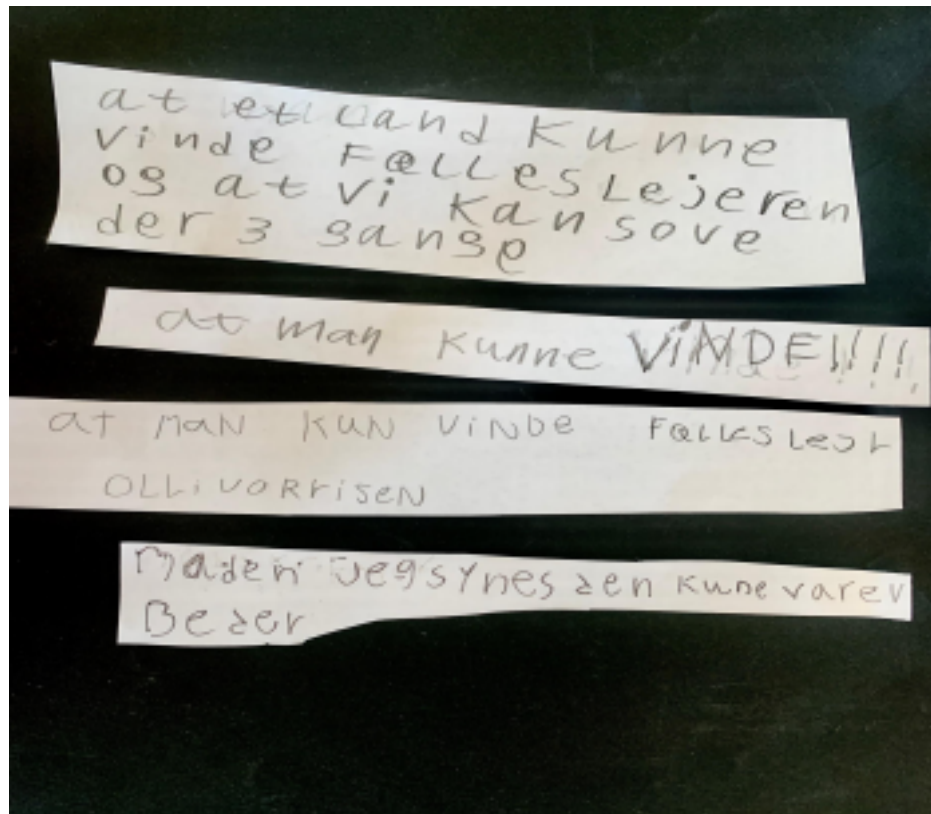 at et Land kunne
vinde FæLLesLejeren
og at vi kan sove
der 3 gange
at man kunne ViNDE!!!!
at maN KUN viNDe FæLLesLejr
OLLivorrisen
Maden Jeg synes den kune varev
Beder